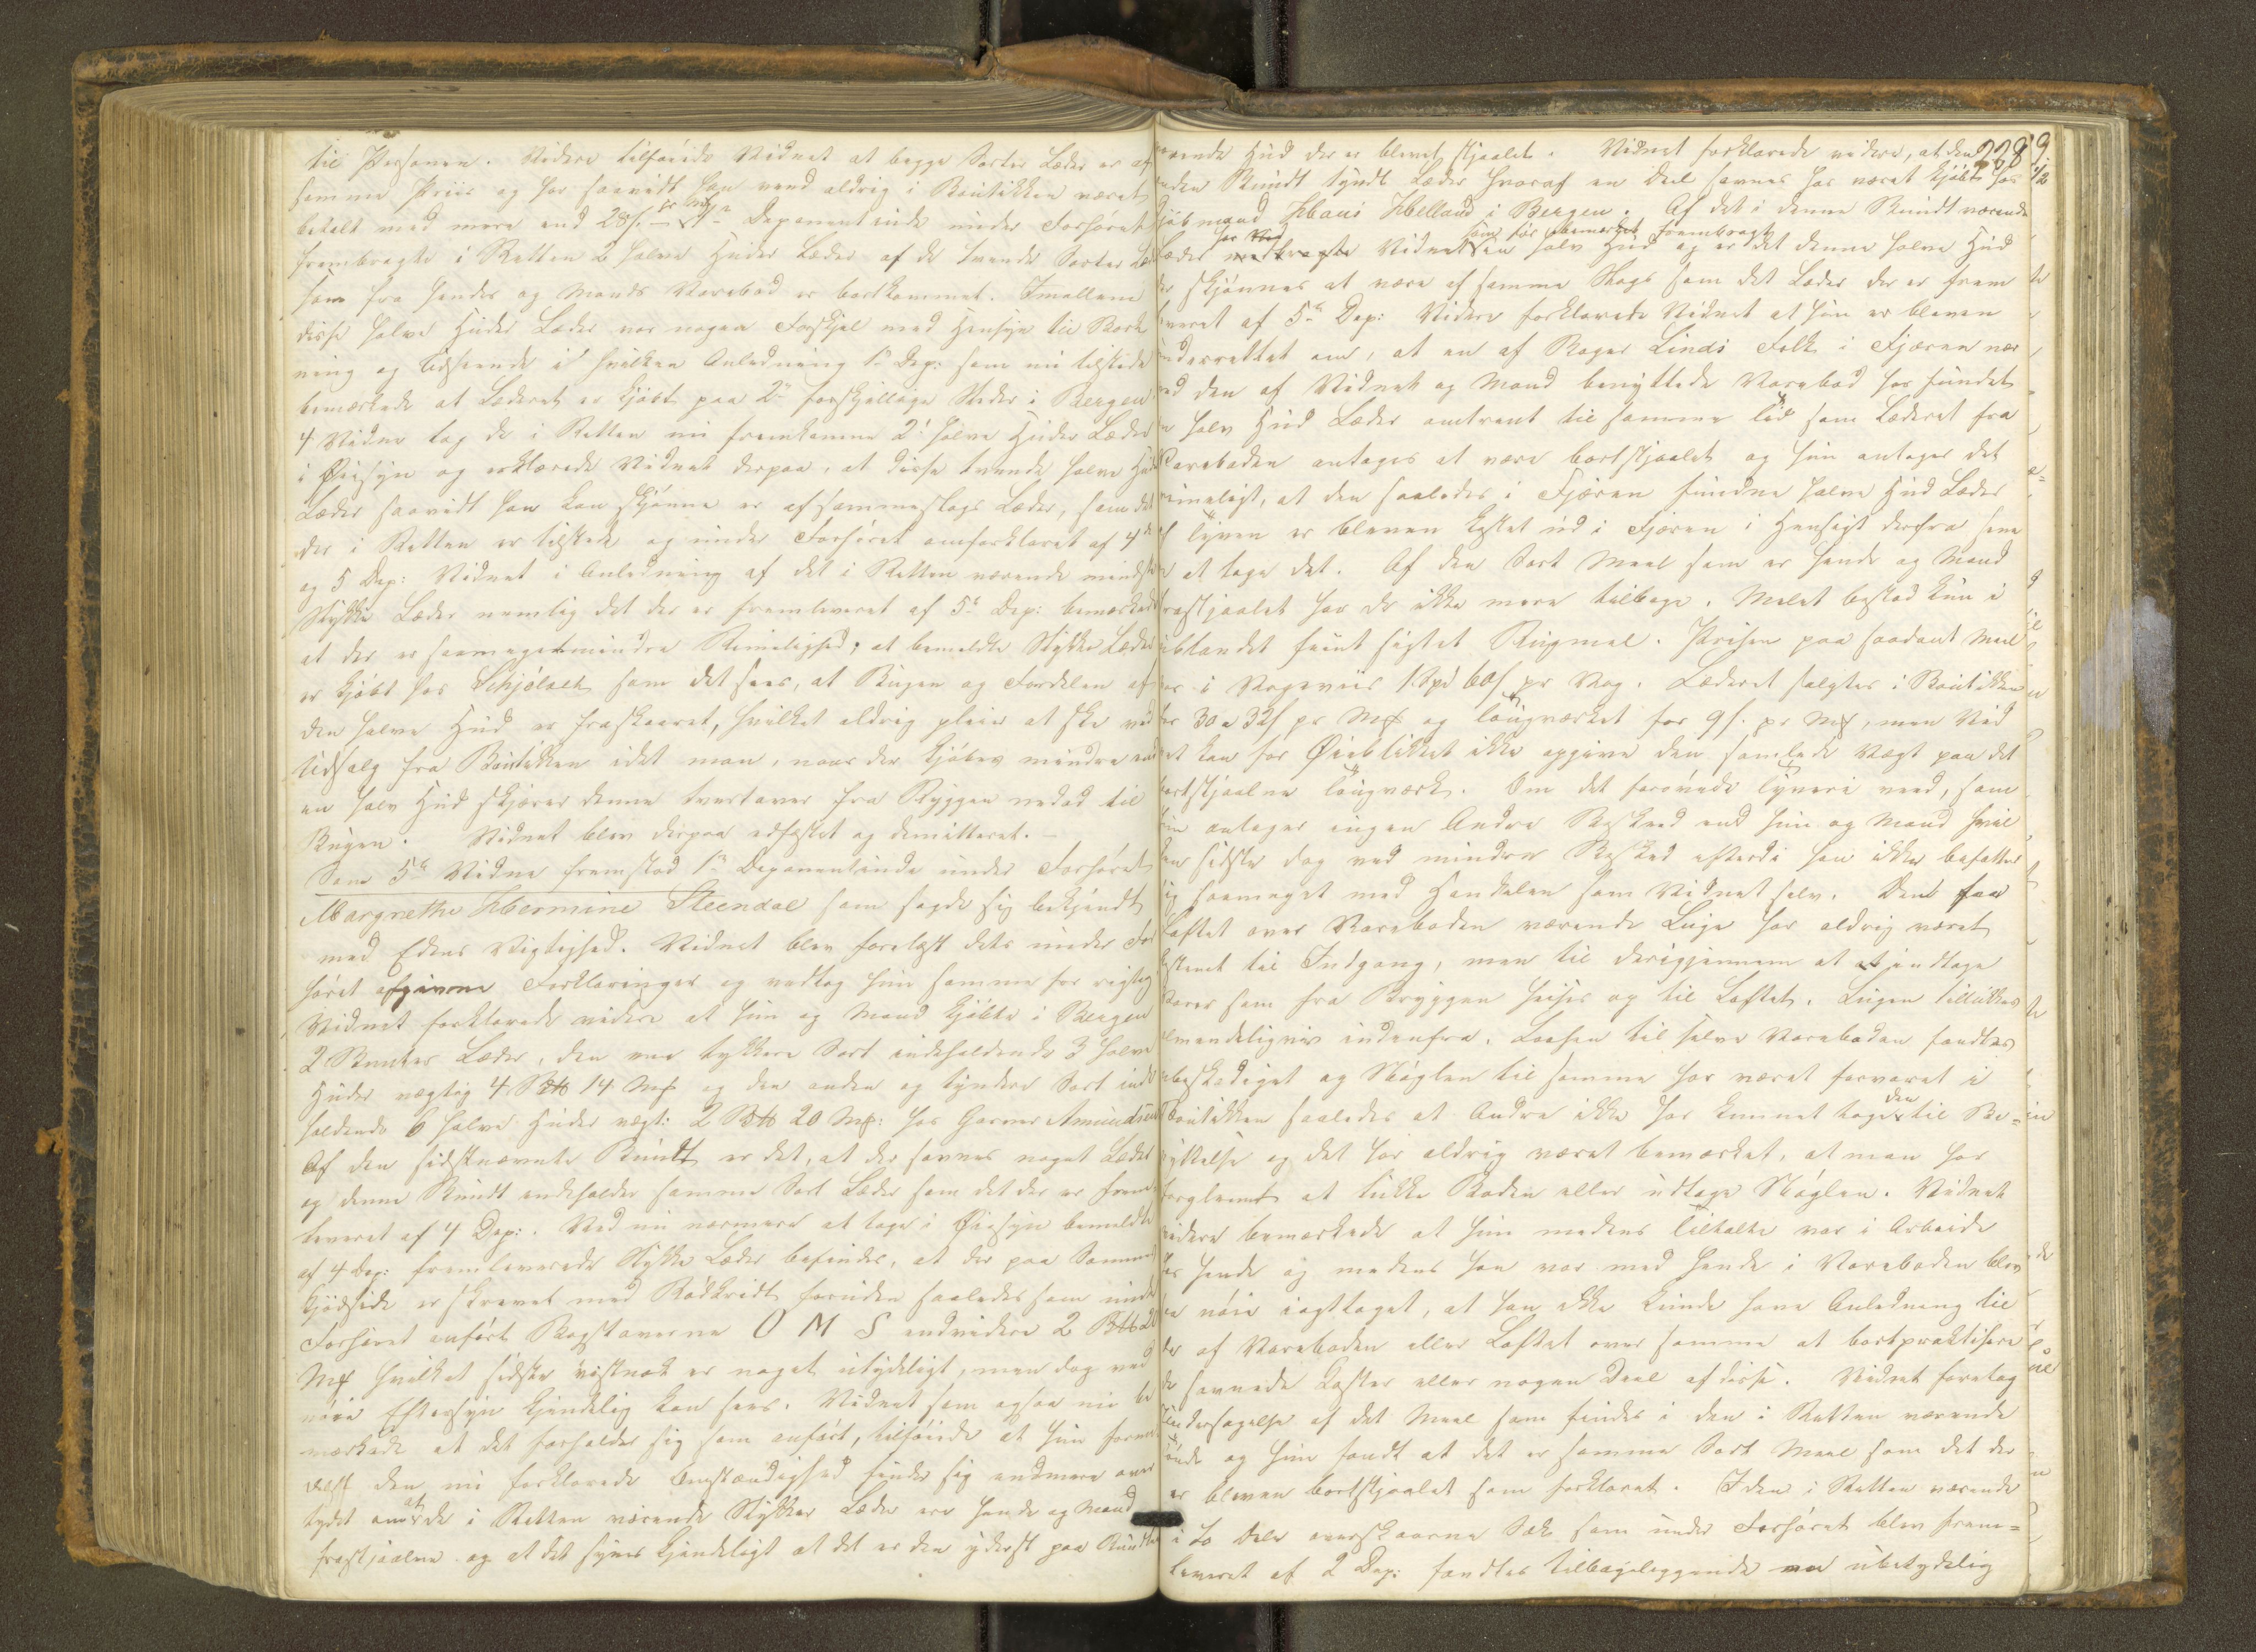 til Personen. Videre tilføiede Vidnet at begge Sorter Læder er af
samme Priis og har saavidt han veed aldrig i Boutikken været
betalt med mere end 28 s. pr Mk. 1ste Deponentinde under Forhøret
frembragte i Retten 2 halve Huder Læder af de tvende Sorter Læ
som fra hendes og Mands Varebod er bortkommet. Imellem
disse halve Huder Læder var nogen Forskjel med Hensyn til Bark
ning og Udseende i hvilken Anledning 1ste Dep: som nu tilstede
bemærkede at Læderet er kjøbt paa 2de forskjellige Steder i Bergen
4 Vidne tog de i Retten nu fremkomne 2de halve Huder Læder
i Øiesyn og erklærede Vidnet derpaa, at disse tvende halve Hud
Læder saavidt han kan skjønne er af sammeslags Læder, som det
der i Retten er tilstede og under Forhøret omforklaret af 4de
og 5 Dep: Vidnet i Anledning af det i Retten værende mindste
Stykke Læder nemlig det der er fremleveret af 5te Dep: bemærkede
at der er saameget mindre Rimelighed, at bemeldte Stykke Læder
er kjøbt hos Schjølset som det sees, at Bugen og Fordelen af
den halve Hud er fraskaaret, hvilket aldrig pleier at ske ved
Udsalg fra Boutikken idet man, naar der kjøbes mindre end
en halv Hud skjærer denne tvertover fra Ryggen nedad til
Bugen. Vidnet blev derpaa edfæstet og demitteret. –
Som 5te Vidne fremstod 1ste Deponentinde under Forhøret
Margrethe Hermine Steendal som sagde sig bekjendt
med Edens Vigtighed. Vidnet blev forelæst dets under For
høret afgivne Forklaringer og vedtog hun samme for rigtig
Vidnet forklarede videre at hun og Mand kjøbte i Bergen
2 Bundter Læder, den ene tykkere Sort indeholdende 3 halve
Huder vægtig 4 B℔ 14 Mk og den anden og tyndere Sort inde
holdende 6 halve Huder vægt: 2 B℔ 20 Mk: hos Garver Amundsen
Af den sidstnævnte Bundt er det, at der savnes noget Læder
og denne Bundt indeholder samme Sort Læder som det der er frem
leveret af 4 Dep:. Ved nu nærmere at tage i Øiesyn bemeldte
af 4 Dep: fremleverede Stykke Læder befindes, at der paa Sammes
Kjødside er skrevet med Rødkridt foruden saaledes som under
Forhøret anført Bogstaverne O M S endvidere 2 B℔ 20
Mk hvilket sidste vistnok er noget utydeligt, men dog ved
nøie Eftersyn kjendelig kan sees. Vidnet som ogsaa nu be
mærkede at det forholder sig som anført, tilføiede at hun formed
elst den nu forklarede Omstændighed finder sig endmere over
tydet om at de i Retten værende Stykker Læder ere hende og Mand
frastjaalne og at det synes kjendeligt at det er den yderst paa Bundten
værende Hud der er blevet stjaalet. Vidnet forklarede videre, at den 228
anden Bundt tyndt Læder hvoraf en Deel savnes har været kjøbt hos
Kjøbmand Hans Helland i Bergen. Af det i denne Bundt værende
Læder har Vidnet som før bemærket frembragt en halv Hud og er det denne halve Hud
der skjønnes at være af samme Slags som det Læder der er frem
leveret af 5te Dep: Videre forklarede Vidnet at hun er bleven
underrettet om, at en af Roger Linds Folk i Fjæren nær
ved den af Vidnet og Mand benyttede Varebod har fundet
en halv Hud Læder omtrent til samme Tid som Læderet fra
Vareboden antages at være bortstjaalet og hun antager det
rimeligt, at den saaledes i Fjæren fundne halve Hud Læder
af Tyven er bleven kastet ud i Fjæren i Hensigt derfra sene
re at tage det. Af den Sort Meel som er hende og Mand
frastjaalet har de ikke mere tilbage. Melet bestod kun i
ublandet fiint sigtet Rugmel. Prisen paa saadant Meel
var i Vogeviis 1 Spd 60 s pr Vog. Læderet solgtes i Boutikken
for 30 a 32 s pr Mk og Taugværket for 9 s. pr Mk, men Vid
net kan for Øieblikket ikke opgive den samlede Vægt paa det
bortstjaalne Taugværk. Om det forøvede Tyveri veed, som
hun antager ingen Andre Besked end hun og Mand hvil
ken sidste dog ved mindre Besked efterdi han ikke befatter
sig saameget med Handelen som Vidnet selv. Den paa
Loftet over Vareboden værende Luge har aldrig været
bestemt til Indgang, men til derigjennem at indtage
Varer som fra Bryggen heises op til Loftet. Lugen tillukkes
almindeligviis indenfra. Laasen til selve Vareboden fandtes
ubeskadiget og Nøglen til samme har været forvaret i
Boutikken saaledes at Andre ikke har kunnet tage den til Be=
nyttelse og det har aldrig været bemærket, at man har
forglemt at lukke Boden eller udtage Nøglen. Vidnet
videre bemærkede at hun medens Tiltalte var i Arbeide
hos hende og medens han var med hende i Vareboden blev
saa nøie iagttaget, at han ikke kunde have Anledning til
der af Vareboden eller Loftet over samme at bortpraktisere
de savnede Koster eller nogen Deel af disse. Vidnet foretog
Undersøgelse af det Meel som findes i den i Retten værende
Tønde og hun fandt at det er samme Sort Meel som det der
er bleven bortstjaalet som forklaret. I den i Retten værende
i to Dele overskaarne Sæk som under Forhøret blev frem=
leveret af 2 Dep: fandtes tilbageliggende en ubetydelig